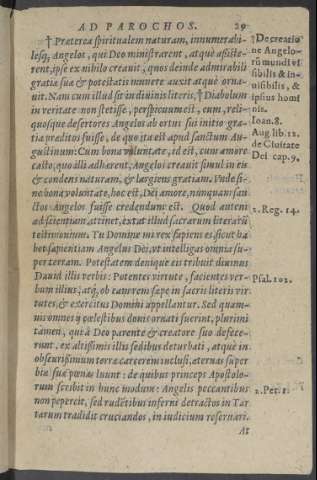 AD PAROCHOS. 29
† Præterea spiritualem naturam, innumerabi-
lesq; Angelos, qui Deo ministrarent, atque assiste-
rent, ipse ex nihilo creauit, quos deinde admirabili
gratia sua & potestatis munere auxit atque orna-
uit. Nam cum illud sit in diuinis literis, † Diabolum
in veritate non stetisse, perspicuum est, cum, reli-
quosque desertores Angelos ab ortus sui initio gra-
tia præditos fuisse, de quo ita est apud sanctum Au-
gustinum: Cum bona voluntate, id est, cum amore
casto, quo illi adhærent, Angelos creauit simul in eis
& condens naturam, & largiens gratiam. Vnde si-
ne bona voluntate, hoc est, Dei amore, nunquam san-
ctos Angelos fuisse credendum est. Quod autem
ad scientiam attinet, extat illud sacrarum literarū
testimonium. Tu Domine mi rex sapiens es, sicut ha
bet sapientiam Angelus Dei, vt intelligas omnia su-
per terram. Potestatem denique eis tribuit diuinus
Dauid illis verbis: Potentes virtute, facientes ver-
bum illius, atq; ob eam rem sæpe in sacris literis vir
tutes, & exercitus Domini appellantur. Sed quam-
uis omnes ij cœlestibus donis ornati fuerint, plurimi
tamen, qui à Deo parente & creatore suo defece-
runt, ex altissimis illis sedibus deturbati, atque in
obscurissimum terræ carcerem inclusi, æternas super
biæ suæ pœnas luunt: de quibus princeps Apostolo-
rum scribit in hunc modum: Angelis peccantibus
non pepercit, sed rudētibus inferni detractos in Tar
tarum tradidit cruciandos, in iudicium reseruari.
At
† Decreatio
ne Angelo-
rū mundi vi
sibilis & in-
uisibilis, &
ipsius homi
nis.
Ioan. 8.
Aug lib. 12.
de Ciuitate
Dei cap. 9.
2. Reg. 14.
Psal. 102.
2. Pet. 2.